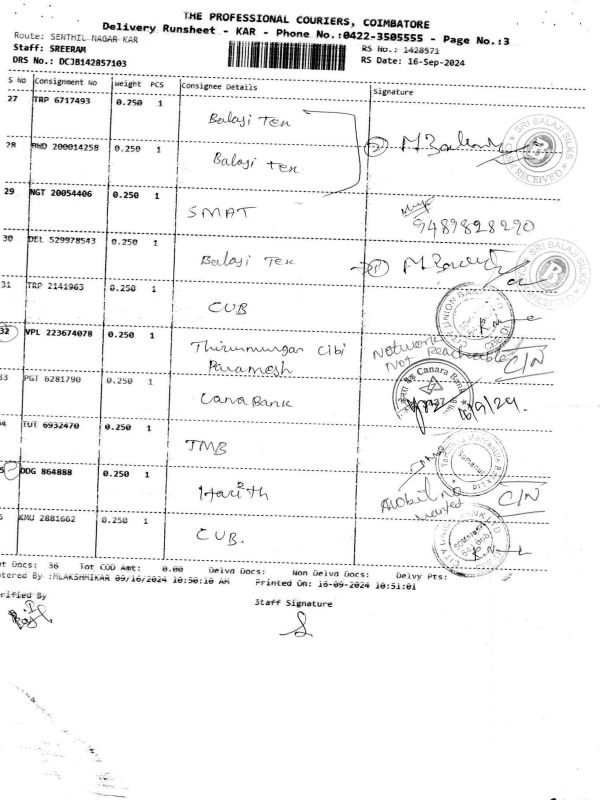 THE PROFESSIONAL COURIERS, COIMBATORE
Delivery Runsheet - KAR - Phone No.:0422-3505555 - Page No.:3
Route: SENTHIL NAGAR KAR
RS No.: 1428571
Staff: SREERAM
RS Date: 16-Sep-2024
DRS No.: DCJB142857103
S No Consignment No weight PCS Consignee Details Signature
27 TRP 6717493 0.250 1 Balaji Tex
SRI BALAJI SILKS
RECEIVED
28 200014258 0.250 1 Balaji Tex
29 NGT 20054406 0.250 1 SMAT
9489828290
30 DEL 529978543 0.250 1 Balaji Tex
SRI BALAJI SILKS
RECEIVED
31 TRP 2141963 0.250 1 CUB
32 VPL 223674078 0.250 1 Thirumurgan Cibi
Paramesh
Network
Not Reacheable
C/N
33 PGT 6281790 0.250 1 Canara Bank
Canara Bank
16/9/24.
TUT 6932470 0.250 1 TMB
DDG 864888 0.250 1 Harith
C/N
KMU 2881662 0.250 1 CUB.
Docs: 36 Tot COD Amt: 0.00 Delvd Docs: Non Delvd Docs: Delvy Pts:
tered By :MLAKSHMIKAR 09/16/2024 10:50:10 AM Printed On: 16-09-2024 10:51:01
rified By
Staff Signature